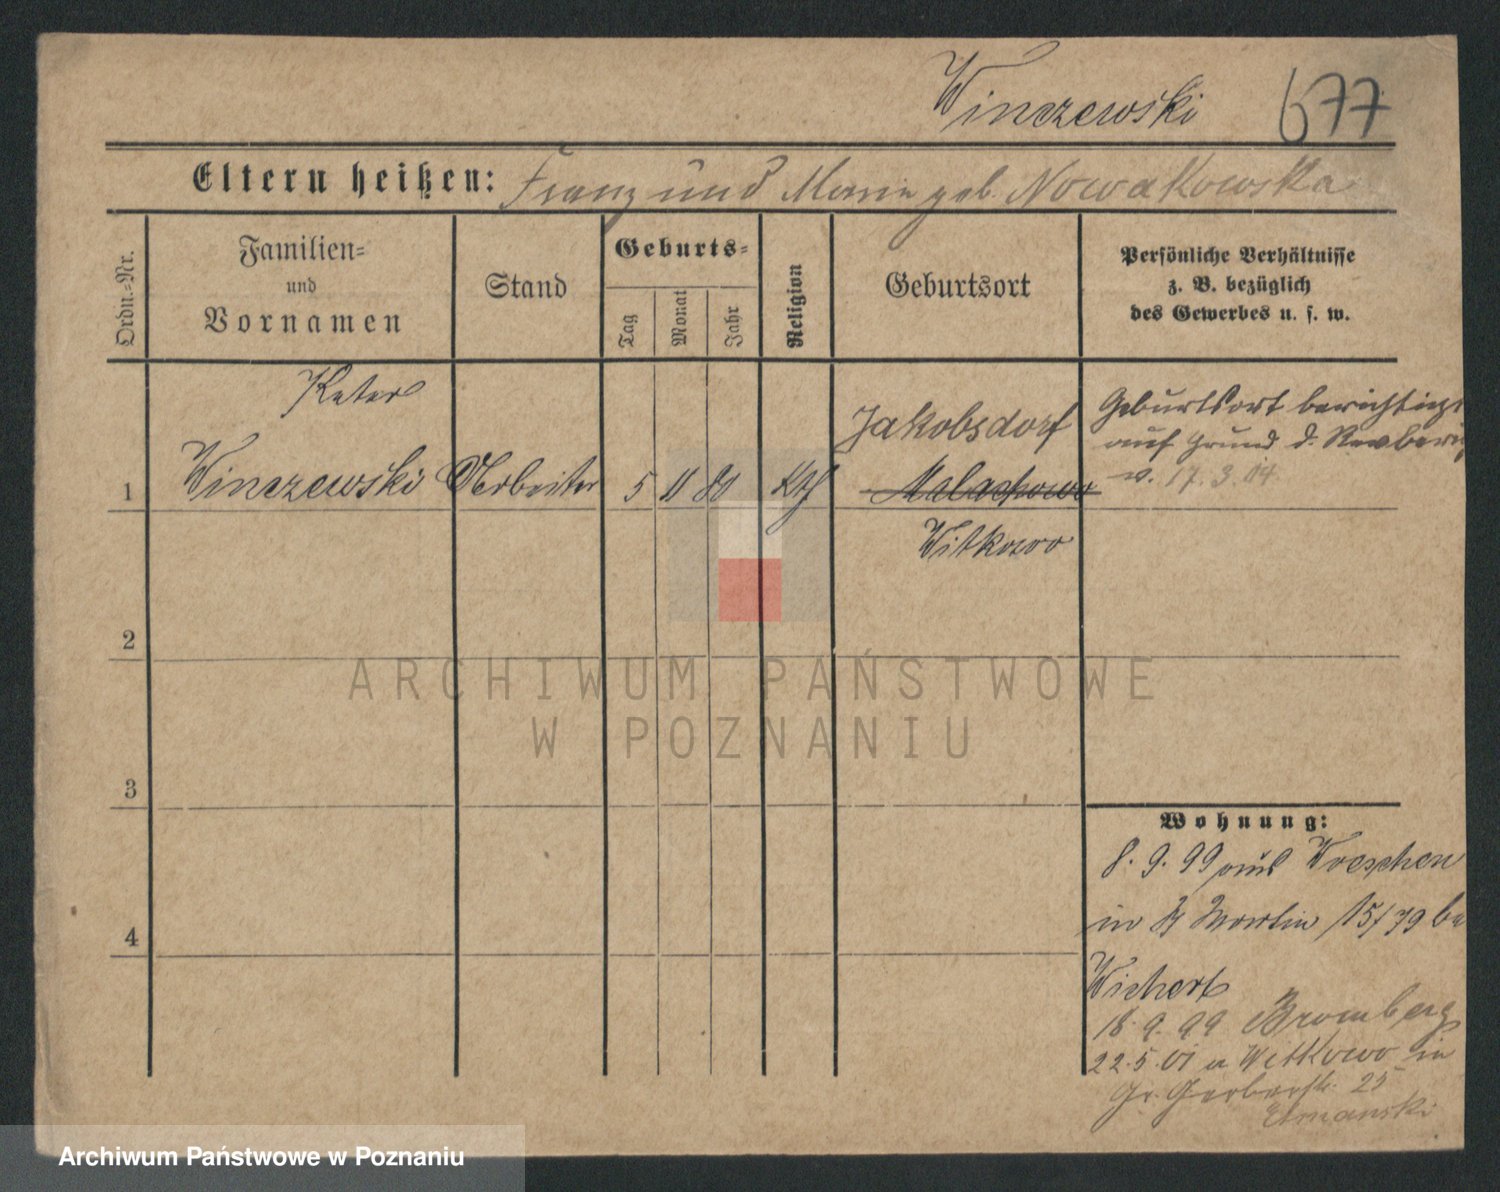 Winczewski 677
Eltern heißen: Franz und Marie geb. Nowakowska
Ordn.-Nr.
Familien-
und
Vornamen
Stand
Geburts-
Tag
Monat
Jahr
Religion
Geburtsort
Persönliche Verhältnisse
z. B. bezüglich
des Gewerbes u. s. w.
Peter
1 Winczewski Arbeiter 5 11 80 Kth
Jakobsdorf
Malachowo
Witkowo
Geburtsort berichtigt
auf Grund d.
v. 17.3.04
2
3
4
Wohnung:
8.9.99 aus Wreschen
in St Martin 15/79 be
Wichert
18.9.99 Bromberg
22.5.01 a Witkowo in
Gr. Gerberstr. 25
ARCHIWUM PAŃSTWOWE
W POZNANIU
Archiwum Państwowe w Poznaniu